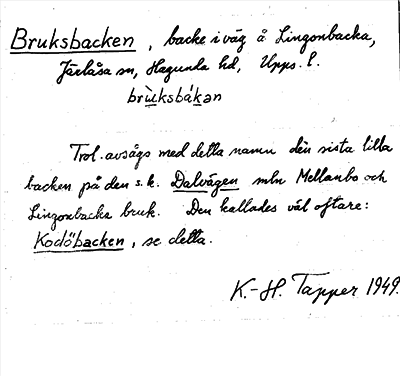 Bruksbacken, backe i väg å Lingonbacka,
Järlåsa sn, Hagunda hd, Upps. l.
brùksbákan
Trol. avsågs med detta namn den sista lilla
backen på den s.k. Dalvägen mln Mellanbo och
Lingonbacka bruk. Den kallades väl oftare:
Kodöbacken, se detta.
K.-H. Tapper 1949.